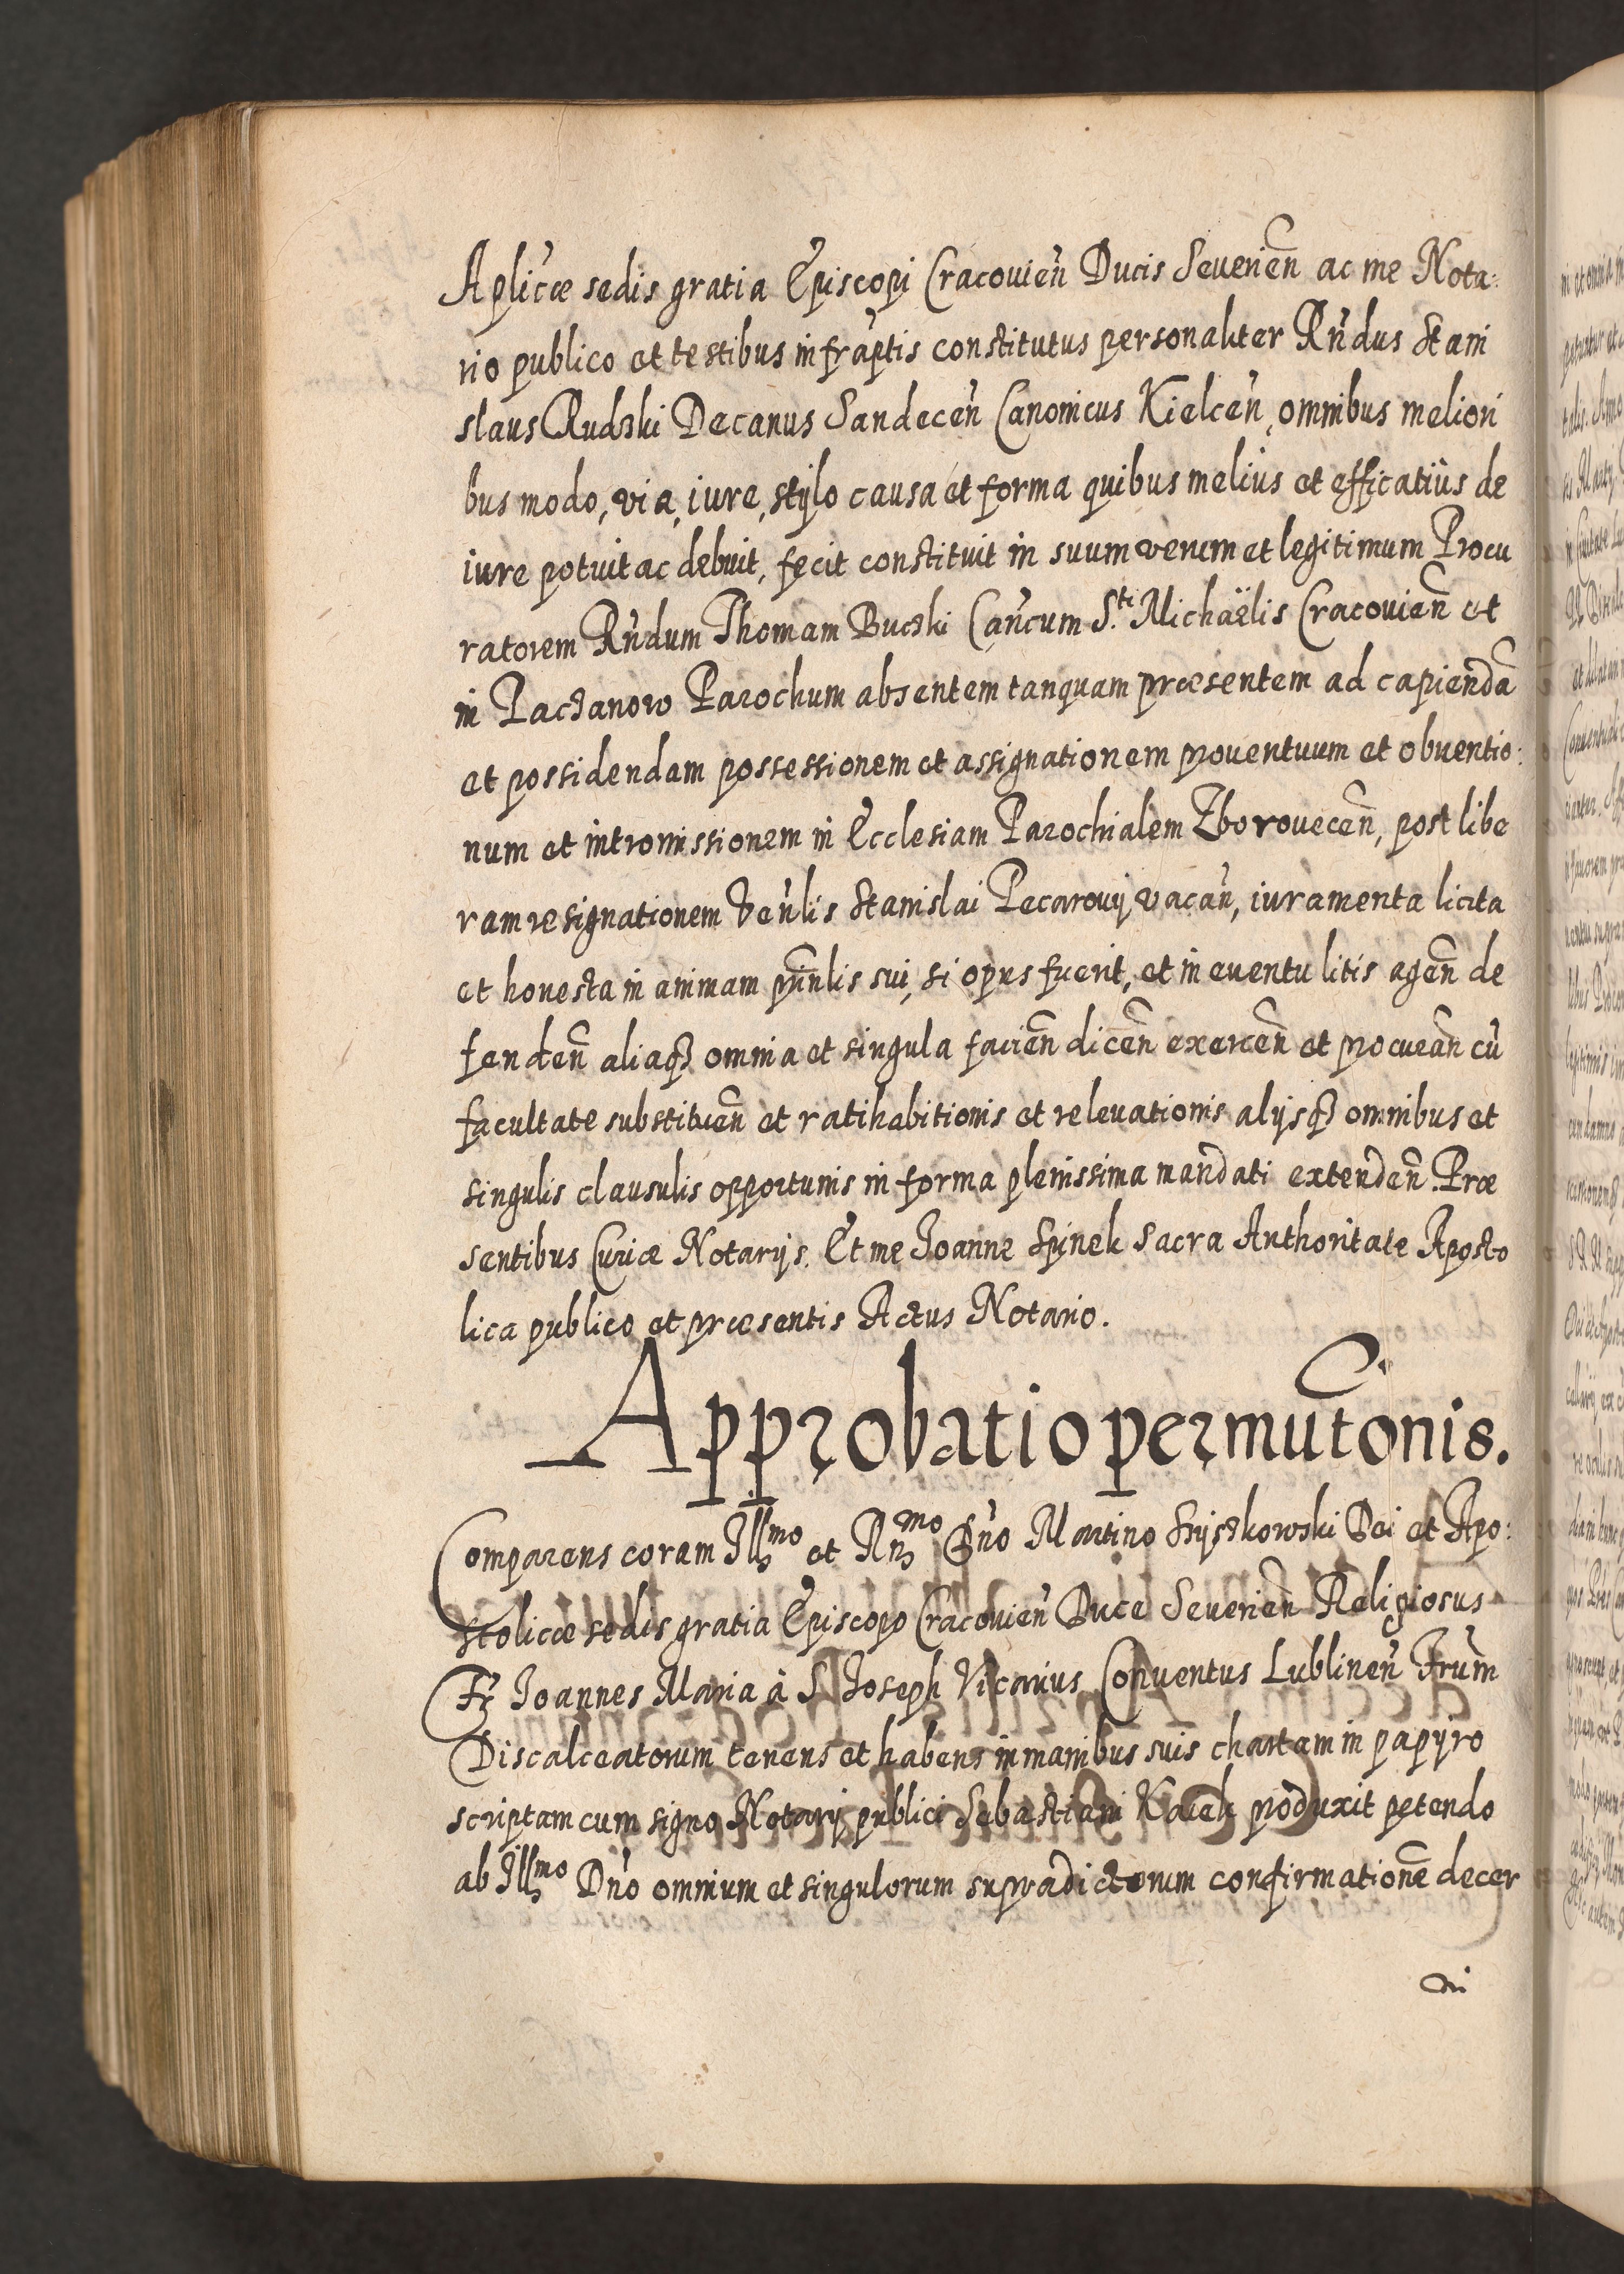 Aplicæ sedis gratia Episcopi Cracovien̄ Ducis Severien̄ ac me Nota:
rio publico et testibus infraptis constitutus personaliter Rn̄dus Stani
slaus Rudzki Decanus Sandecen̄ Canonicus Kielcen̄, omnibus meliori
bus modo, via, iure, stylo causa et forma quibus meliùs et efficatiùs de
iure potuit ac debuit, fecit constituit in suum verum et legitimum Procu
ratorem Rn̄dum Thomam Buczki Can̄cum S.ti Michaëlis Cracovien̄ et
in Paczanow Parochum absentem tanquam præsentem ad capiendā
et possidendam possessionem et assignationem proventuum et obventio:
num et intromissionem in Ecclesiam Parochialem Zborovecen̄, post libe
ram resignationem Ven̄lis Stanislai Pecarovij vacan̄, iuramenta licita
et honesta in animam prin̄lis sui, si opus fuerit, et in eventu litis agen̄ de
fenden̄ aliaqꝫ omnia et singula facien̄ dicen̄ exercen̄ et procuran̄ cū
facultate substituen̄ et ratihabitionis et relevationis alijsqꝫ omnibus et
singulis clausulis opportunis in forma plenissima mandati extenden̄. Præ
sentibus Curiæ Notarijs. Et me Joanne Spinek Sacra Authoritate Aposto
lica publico et præsentis Actus Notario.
Approbatio permutōnis.
Comparens coram Illmo et Rnmo Dn̄o Martino Szyszkowski Dei et Apo:
stolicæ sedis gratia Episcopo Cracovien̄ Duce Severien̄ Religiosus
Fr Joannes Maria à S. Joseph Vicarius Conventus Lublinen̄ Frūm
Discalceatorum tenens et habens in manibus suis chartam in papyro
scriptam cum signo Notarij publici Sebastiani Kaick produxit petendo
ab Illmo Dn̄o omnium et singulorum supradictorum confirmationē decer
ni